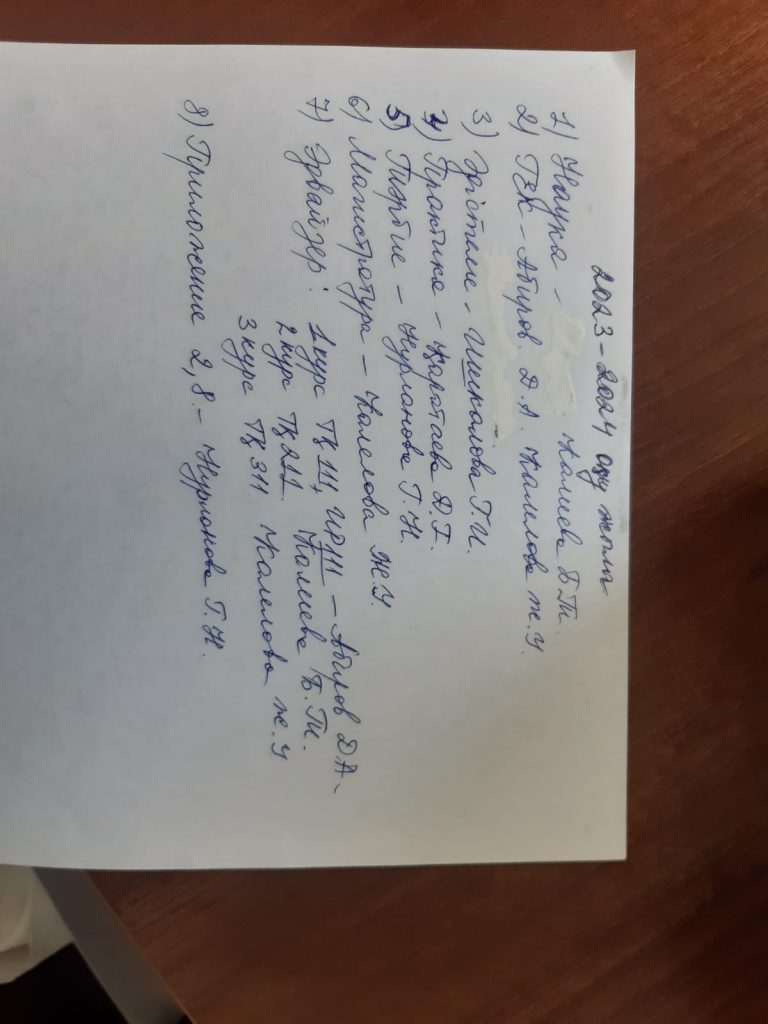 2023-2024 оқу жылы
1) Наука - Калиева Б.Т.
2) ГЗК - Абиров. Д.А. Калелова Ж.У.
3) Әдістеме - Ишкалова Г.И.
4) Практика - Қаратаева Д.Г.
5) Тәрбие - Нурланова Г.Н.
6) Магистратура - Калелова Ж.У.
7) Эдвайзер: 1 курс ТҚ 111, ИР111 - Абиров Д А -
2 курс ТҚ 211 Калиева Б.Т.
3 курс ТҚ 311. Калелова Ж.У
8) Приложение 2,8. - Нурланова Г.Н.